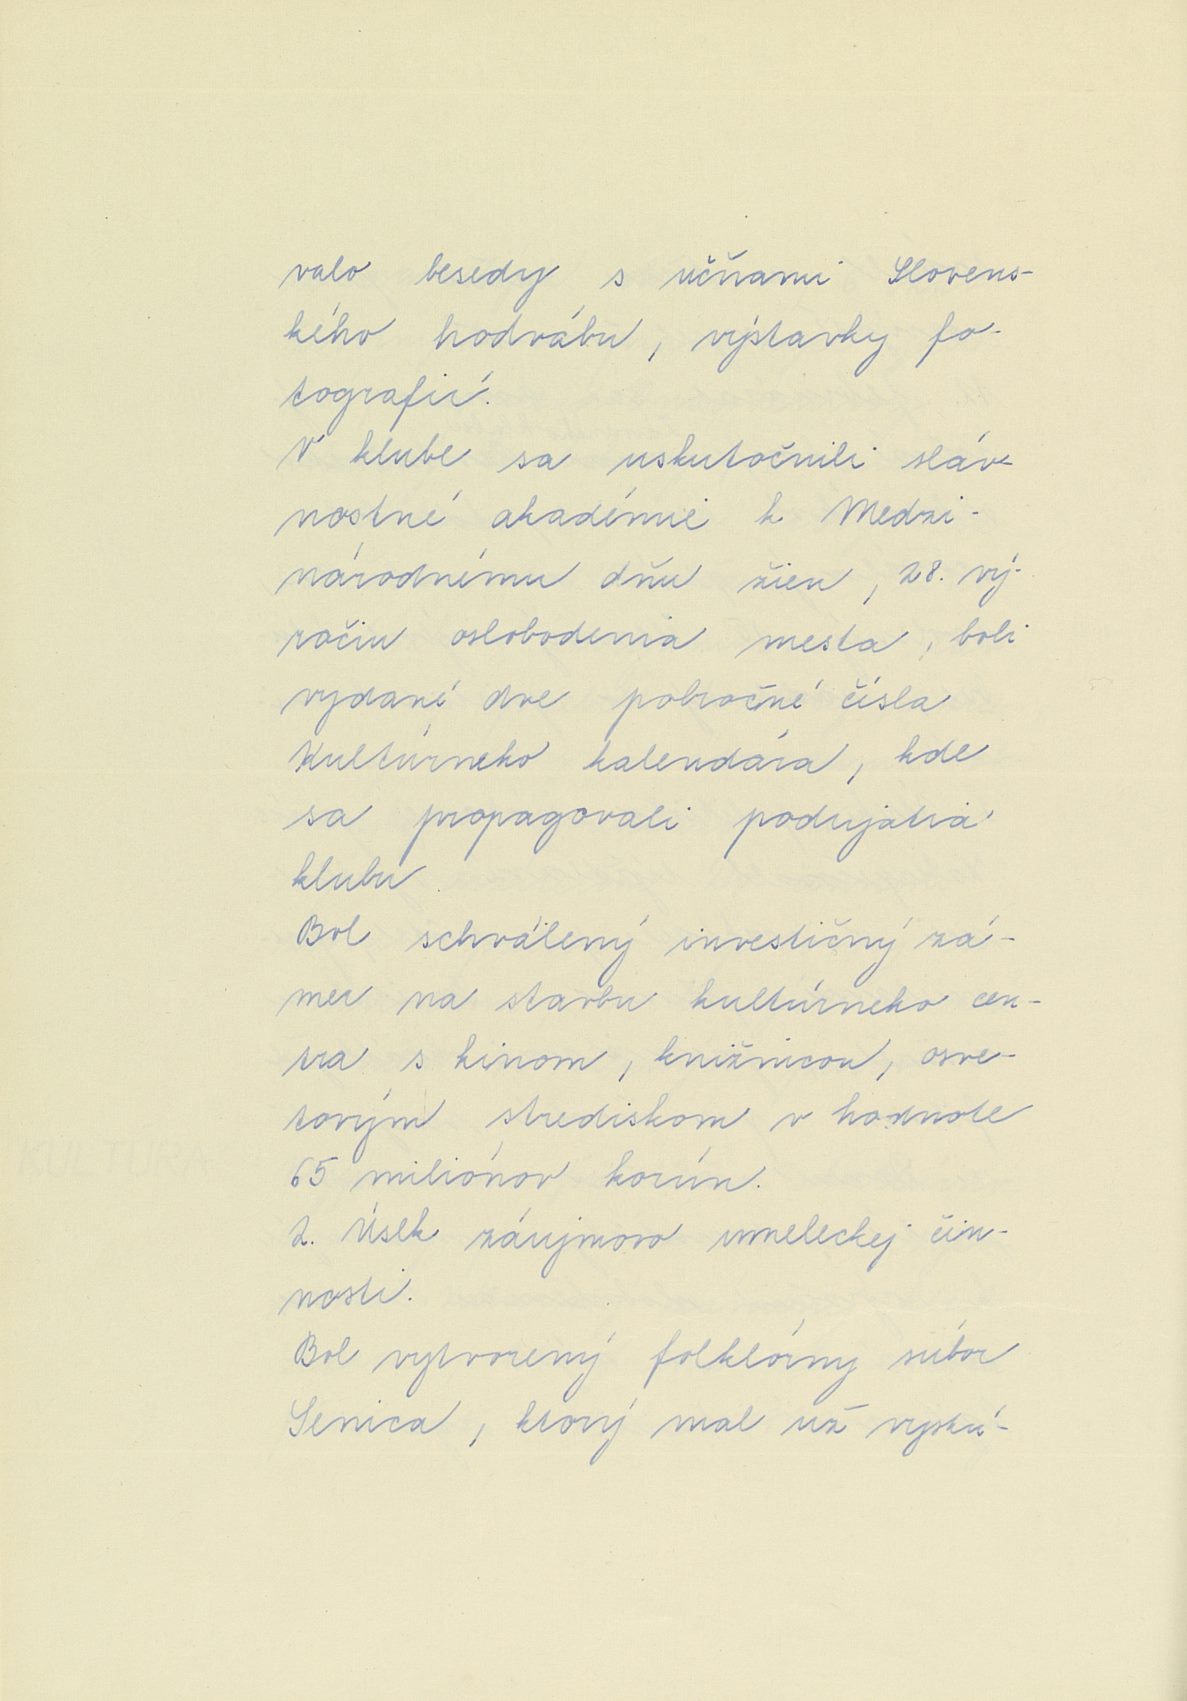 valo besedy s učňami Slovens-
kého hodvábu, výstavky fo-
tografií.
V klube sa uskutočnili sláv-
nostné akadémie k Medzi-
národnému dňu žien, 28. vý-
ročiu oslobodenia mesta, boli
vydané dve polročné čísla
Kultúrneho kalendára, kde
sa propagovali podujatia
klubu.
Bol schválený investičný zá-
mer na stavbu kultúrneho cen-
tra s kinom, knižnicou, osve-
tovým strediskom v hodnote
65 miliónov korún.
2. Úsek záujmovo umeleckej čin-
nosti.
Bol vytvorený folklórny súbor
Senica, ktorý mal už vystú-